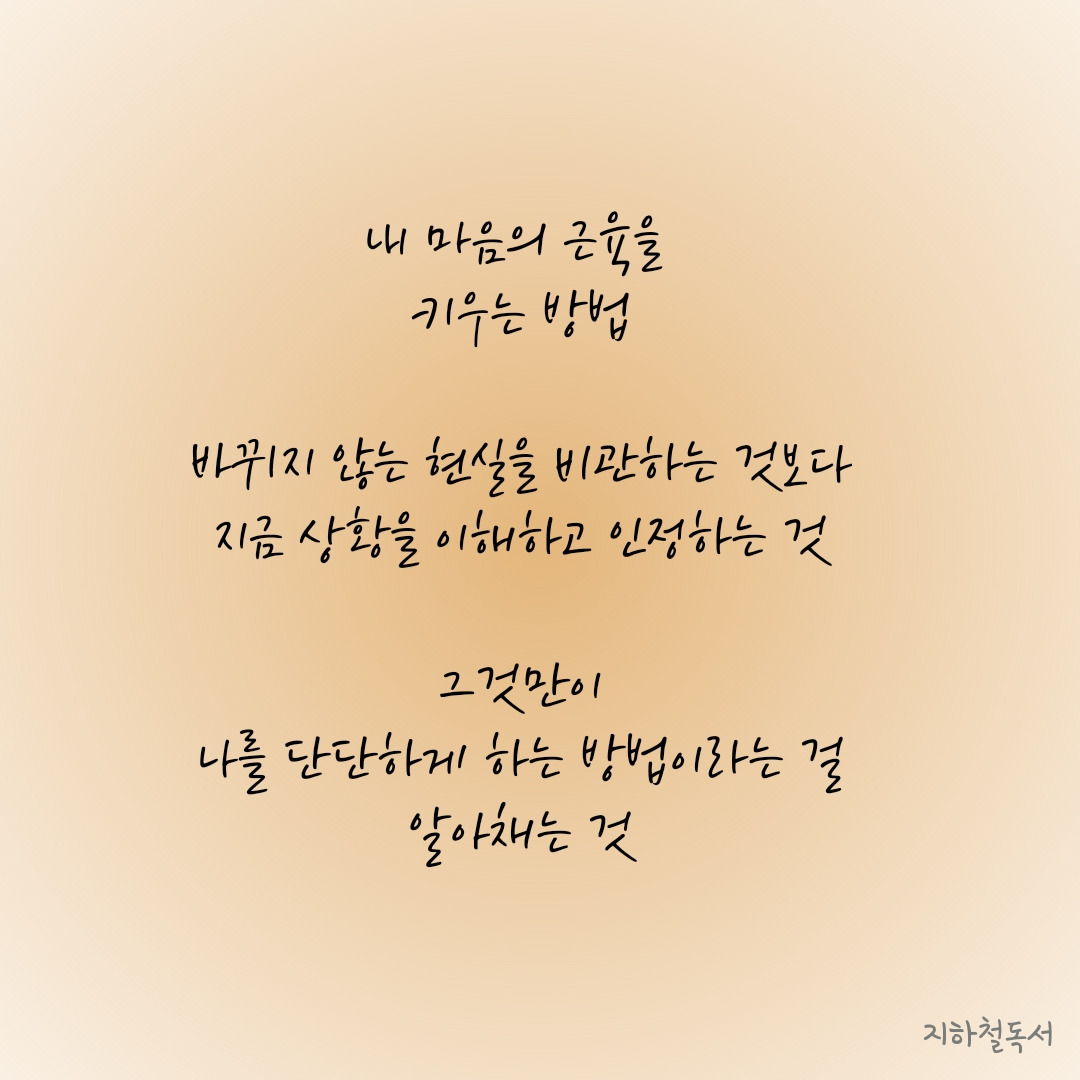 내 마음의 근육을
키우는 방법
바뀌지 않는 현실을 비관하는 것보다
지금 상황을 이해하고 인정하는 것
그것만이
나를 단단하게 하는 방법이라는 걸
알아채는 것
지하철독서